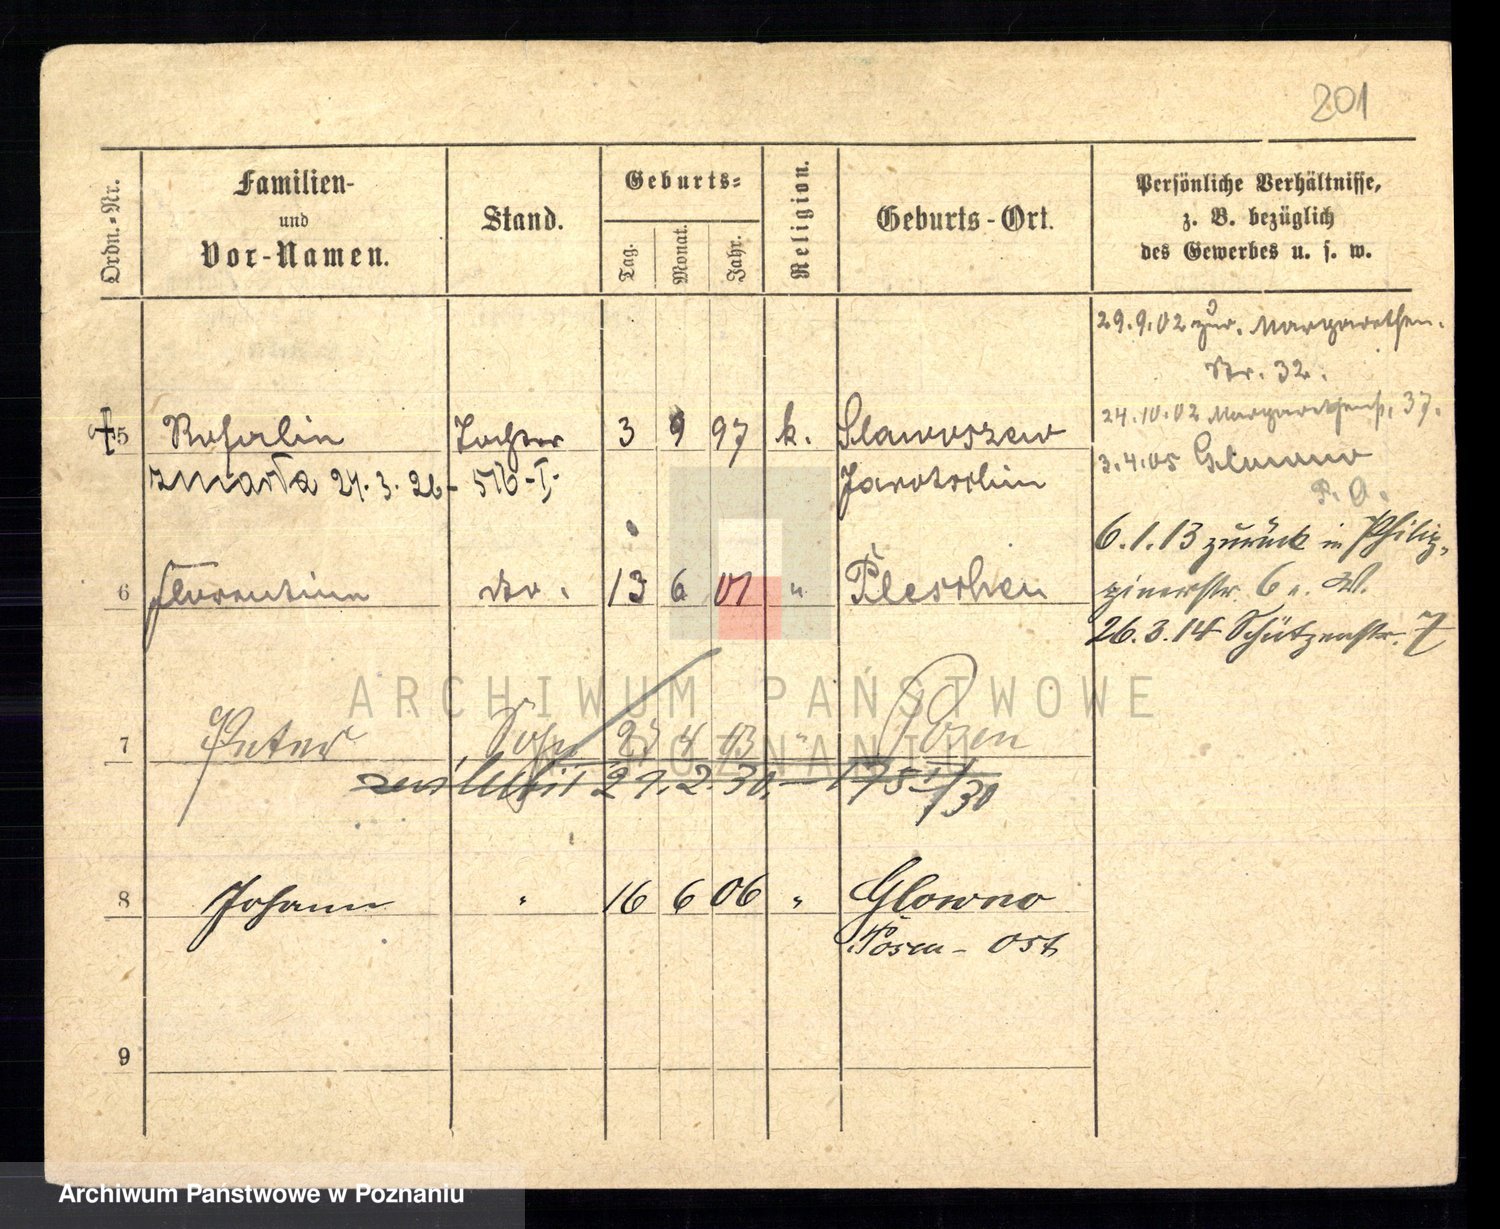 201
Ordn.-Nr.
Familien-
und
Vor-Namen.
Stand.
Geburts-
Tag.
Monat.
Jahr.
Religion.
Geburts-Ort.
Persönliche Verhältnisse,
z. B. bezüglich
des Gewerbes u. s. w.
29.9.02 zur. Margarethen-
Str. 32.
24.10.02 Margarethenstr. 37.
5 Rosalin Tochter 3 9 97 k. Slawoszew
3.4.05 Glowno
zmarła 24.3.26 - 516-I- Jarotschin
P. O.
6.1.13 zurück in Philip-
6 Florentine do. 13 6 01 " Pleschen
pinerstr. 6 u. W.
26.3.14 Schützenstr. 7
7 Peter Sohn 29 4 03 " Posen
29.2.30 - 175 /30
8 Johann " 16 6 06 " Glowno
Posen - Ost
9
ARCHIWUM PAŃSTWOWE
W POZNANIU
Archiwum Państwowe w Poznaniu